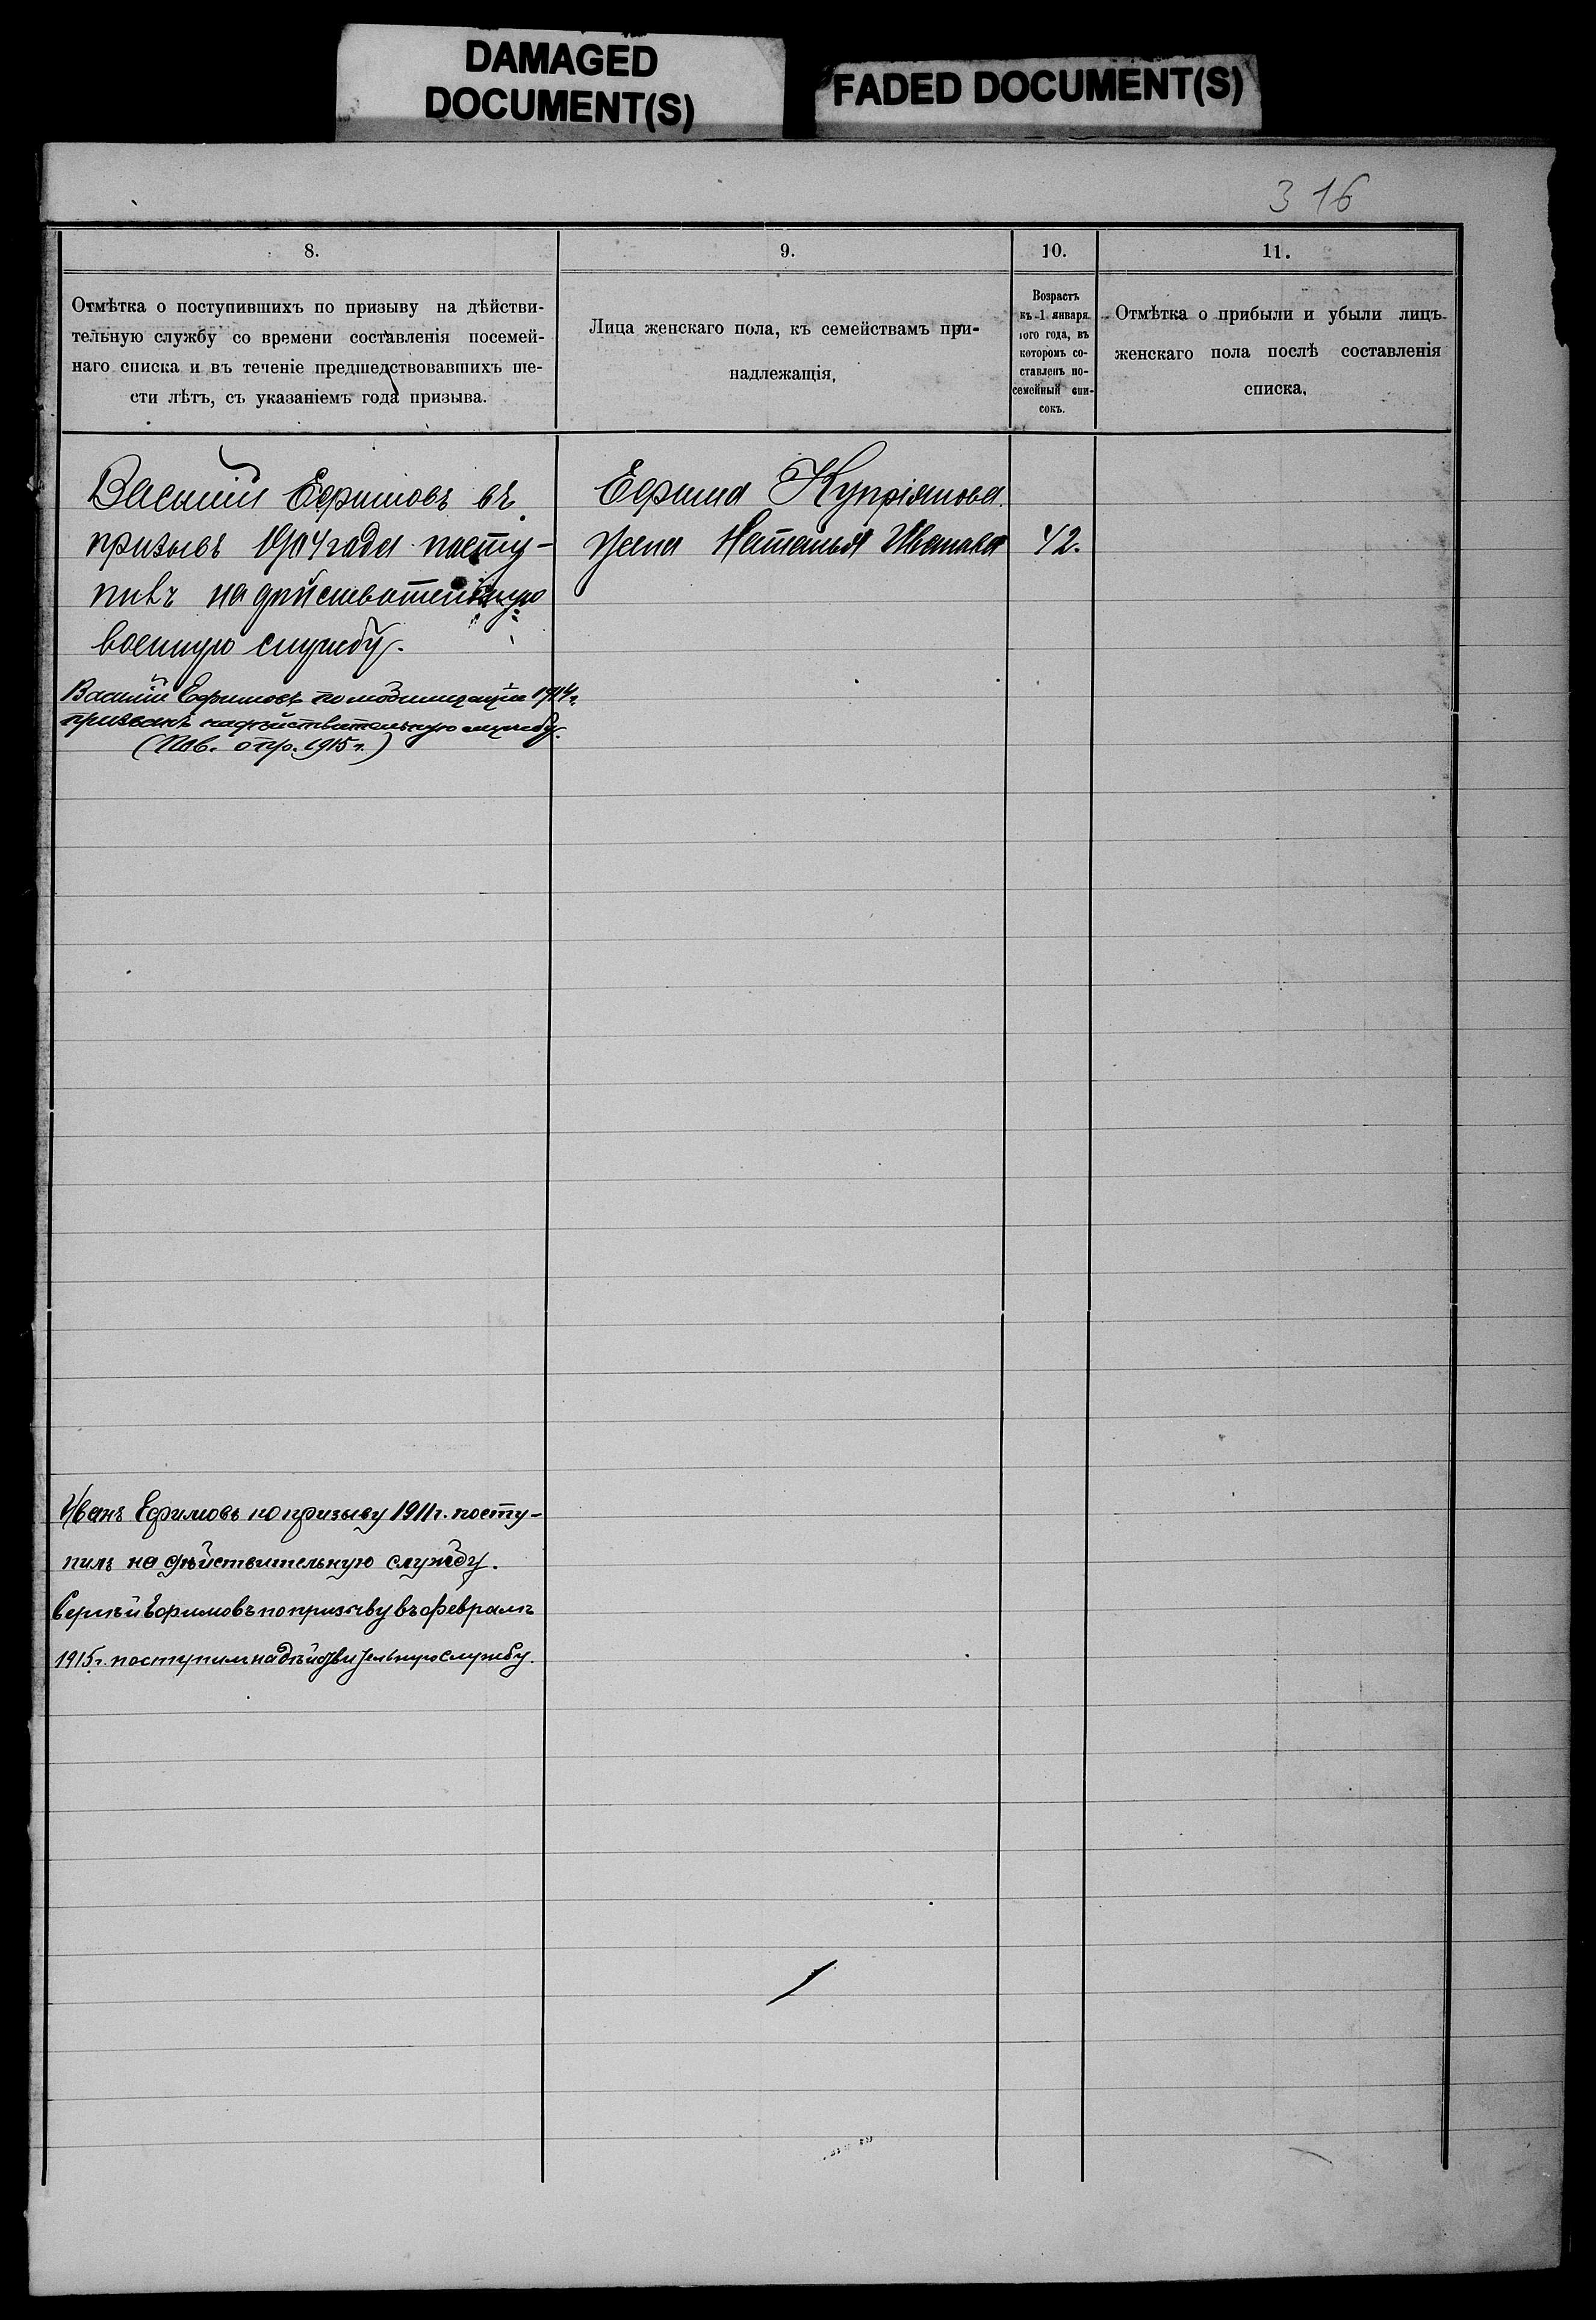 DAMAGED
DOCUMENT(S)
FADED DOCUMENT(S)
316
8.
Отмѣтка о поступившихъ по призыву на дѣйстви-
тельную службу со времени составленія посемей-
наго списка и въ теченіе предшедствовавшихъ ше-
сти лѣтъ, съ указаніемъ года призыва.
9.
Лица женскаго пола, къ семействамъ при-
надлежащія.
10.
Возрастъ
къ 1 января
того года, въ
которомъ со-
ставленъ по-
семейный спи-
сокъ.
11.
Отмѣтка о прибыли и убыли лицъ
женскаго пола послѣ составленія
списка.
Василій Ефимовъ въ
призывъ 1904 года посту-
пилъ на дѣйствительную
военную службу.
Василій Ефимовъ по мобилизаціи 1914 г.
призванъ на дѣйствительную службу.
1915 г.)
Ефима Купріянова
жена Наталья Иванова 42.
Иванъ Ефимовъ по призыву 1911 г. посту-
пилъ на дѣйствительную службу.
Сергѣй Ефимовъ по призыву въ февралѣ
1915 г. поступилъ на дѣйствительную службу.